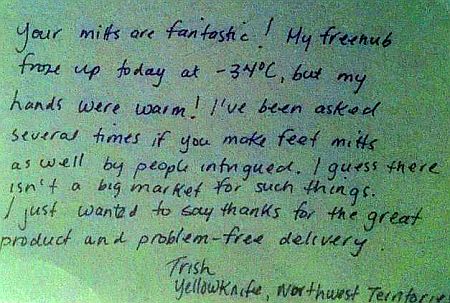 Your mitts are fantastic! My freehub
froze up today at -34°C, but my
hands were warm! I've been asked
several times if you make feet mitts
as well by people intrigued. I guess there
isn't a big market for such things.
I just wanted to say thanks for the great
product and problem-free delivery
Trish
Yellowknife, Northwest Territories